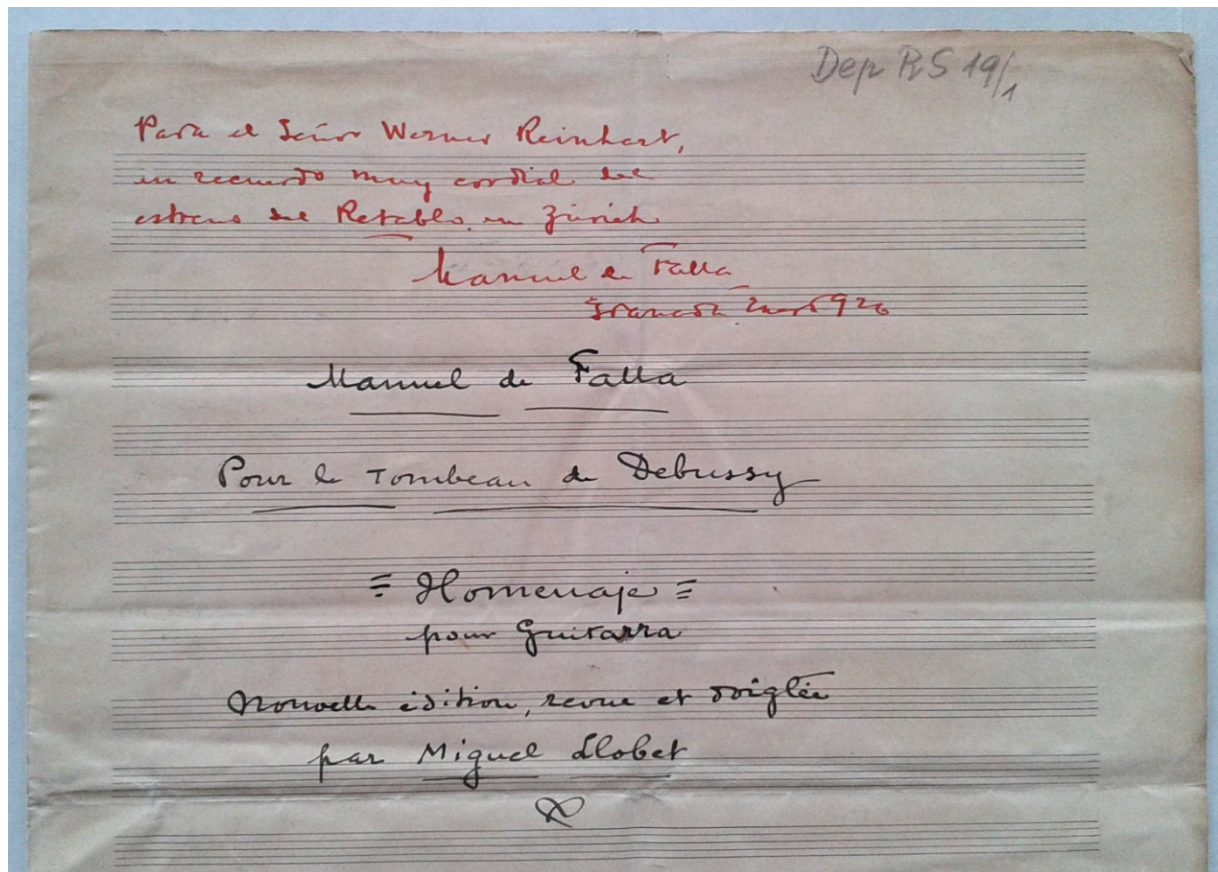 Dep RS 19/1
Para el Señor Werner Reinhart,
en recuerdo muy cordial del
estreno del Retablo en Zürich
Manuel de Falla
Granada Enero 926
Manuel de Falla
Pour le Tombeau de Debussy
= Homenaje =
pour Guitarra
Nouvelle édition, revue et doigtée
par Miguel Llobet